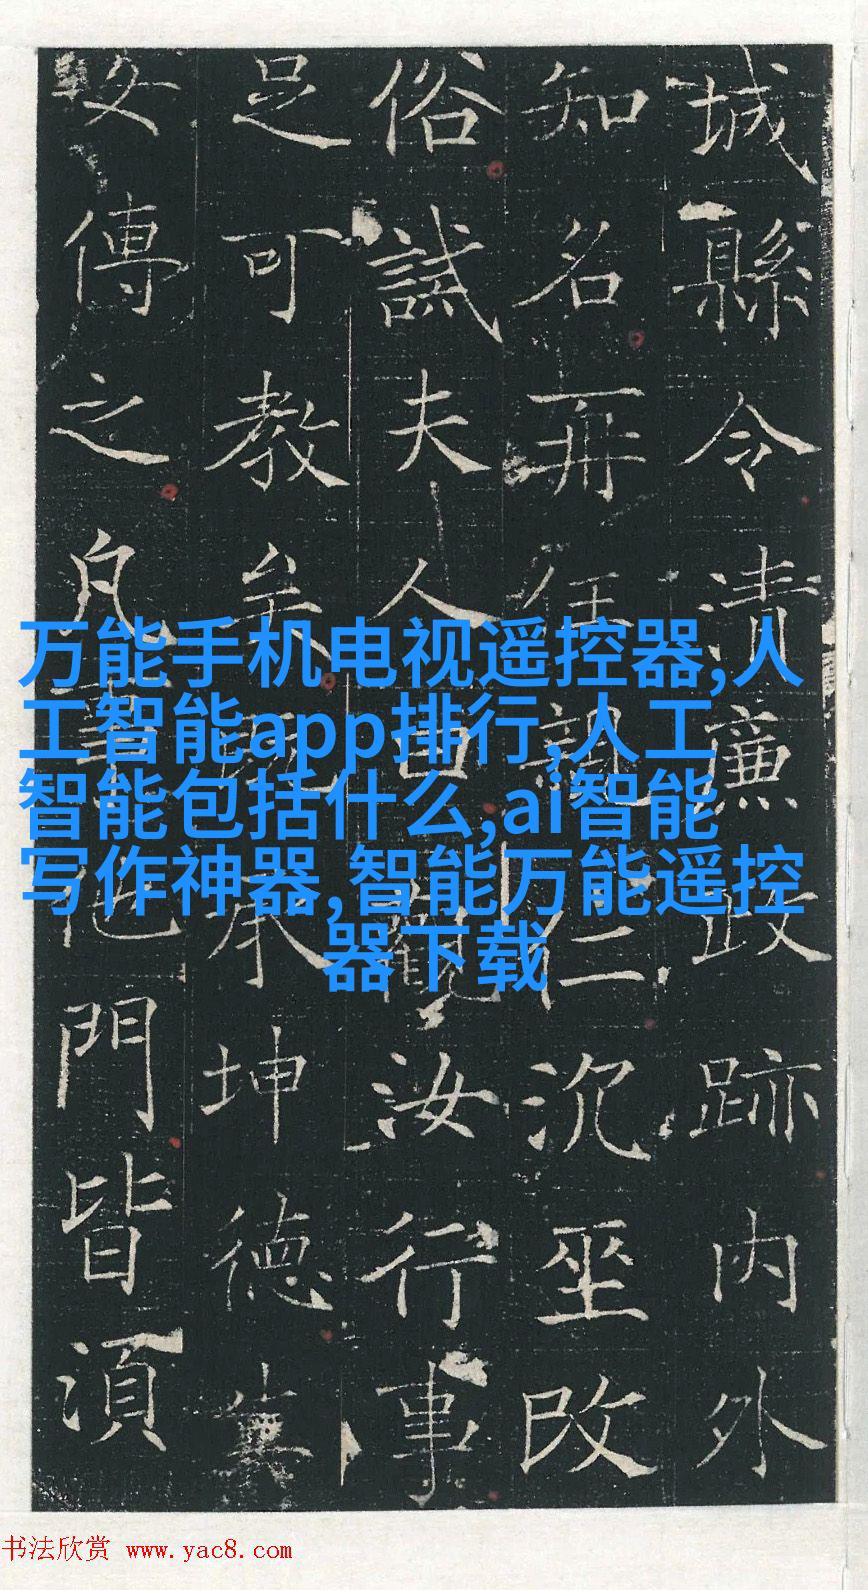 城縣令清廉政跡内外
知名再任親仁沉坐改
俗誡夫人曰觀汝行事
足可教矣既承坤德
傳之凡他門皆須
万能手机电视遥控器,人
工智能app排行,人工
智能包括什么,ai智能
写作神器,智能万能遥控
器下载
书法欣赏 www.yac8.com